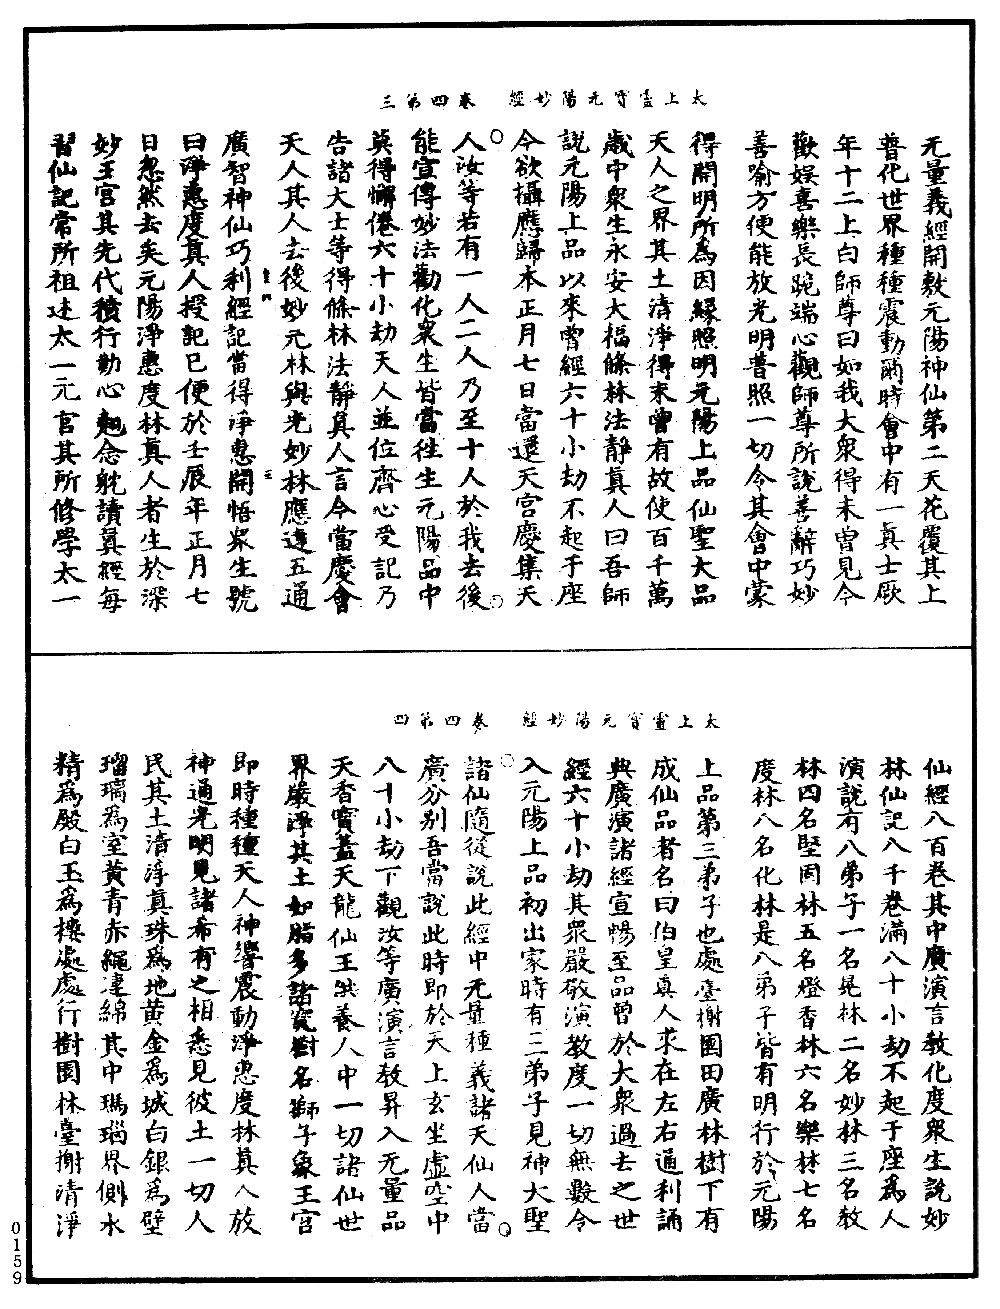 太上靈寶元陽妙經　卷四第三
无量義經開敷元陽神仙第二天花覆其上
普化世界種種震動爾時會中有一真士厥
年十二上白師尊曰如我大衆得未曾見今
歡娛喜樂長跪端心觀師尊所說善辭巧妙
善喻方便能放光明普照一切令其會中蒙
得開明所爲因緣照明元陽上品仙聖大品
天人之界其土清淨得未曾有故使百千萬
歲中衆生永安大福條林法靜真人曰吾師
說元陽上品以來曾經六十小劫不起于座
今欲攝應歸本正月七日當還天宮慶集天
人汝等若有一人二人乃至十人於我去後
能宣傳妙法勸化衆生皆當往生元陽品中
莫得懈倦六十小劫天人並位齊心受記乃
告諸大士等得條林法靜真人言今當慶會
天人其人去後妙元林與光妙林應達五通
廣智神仙巧利經記當得淨惠開悟衆生號
曰淨惠度真人授記已便於壬辰年正月七
日忽然去矣元陽淨惠度林真人者生於深
妙王宮其先代積行勤心勉念躭讀真經每
習仙記常所祖述太一元官其所修學太一
太上靈寶元陽妙經　卷四第四
仙經八百卷其中廣演言教化度衆生說妙
林仙記八千卷滿八十小劫不起于座爲人
演說有八弟子一名晃林二名妙林三名教
林四名堅固林五名燈香林六名樂林七名
度林八名化林是八弟子皆有明行於元陽
上品第三弟子也處臺榭園田廣林樹下有
成仙品者名曰伯皇真人求在左右通利誦
典廣演諸經宣暢至品曾於大衆過去之世
經六十小劫其衆嚴敬演教度一切無數令
入元陽上品初出家時有三弟子見神大聖
諸仙隨從說此經中无量種義諸天仙人當
廣分别吾當說此時即於天上玄坐虛空中
八十小劫下觀汝等廣演言教昇入无量品
天香寶蓋天龍仙王供養人中一切諸仙世
界嚴淨其土如脂多諸寶樹名獅子象王宮
即時種種天人神響震動淨惠度林真人放
神通光明見諸希有之相悉見彼土一切人
民其土清淨真珠爲地黄金爲城白銀爲壁
瑠璃爲室黄青赤繩建綿其中瑪瑙界側水
精爲殿白玉爲樓處處行樹園林臺榭清淨
0159